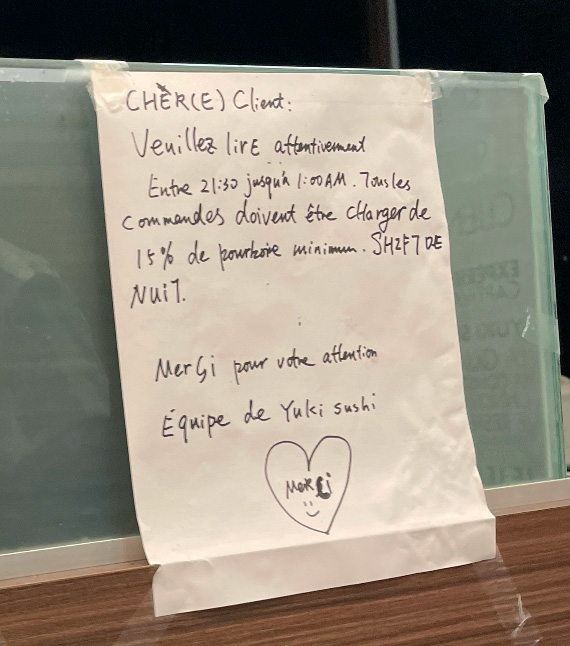 CHÈR(E) Client:
Veuillez lirE attentivement
Entre 21:30 jusqu'à 1:00AM. Tous les
commandes doivent être charger de
15% de pourboire minimum. SHIFT DE
NUIT.
Merçi pour votre attention
Équipe de Yuki sushi
Merci